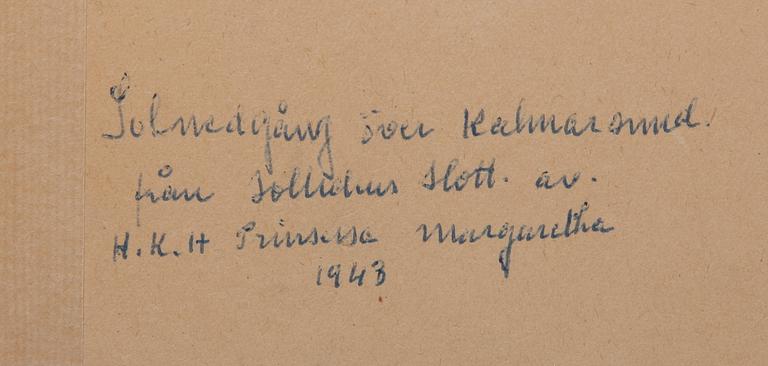 Solnedgång över Kalmarsund.
från Solliden Slott. av.
H.K.H Prinsessa Margaretha
1943